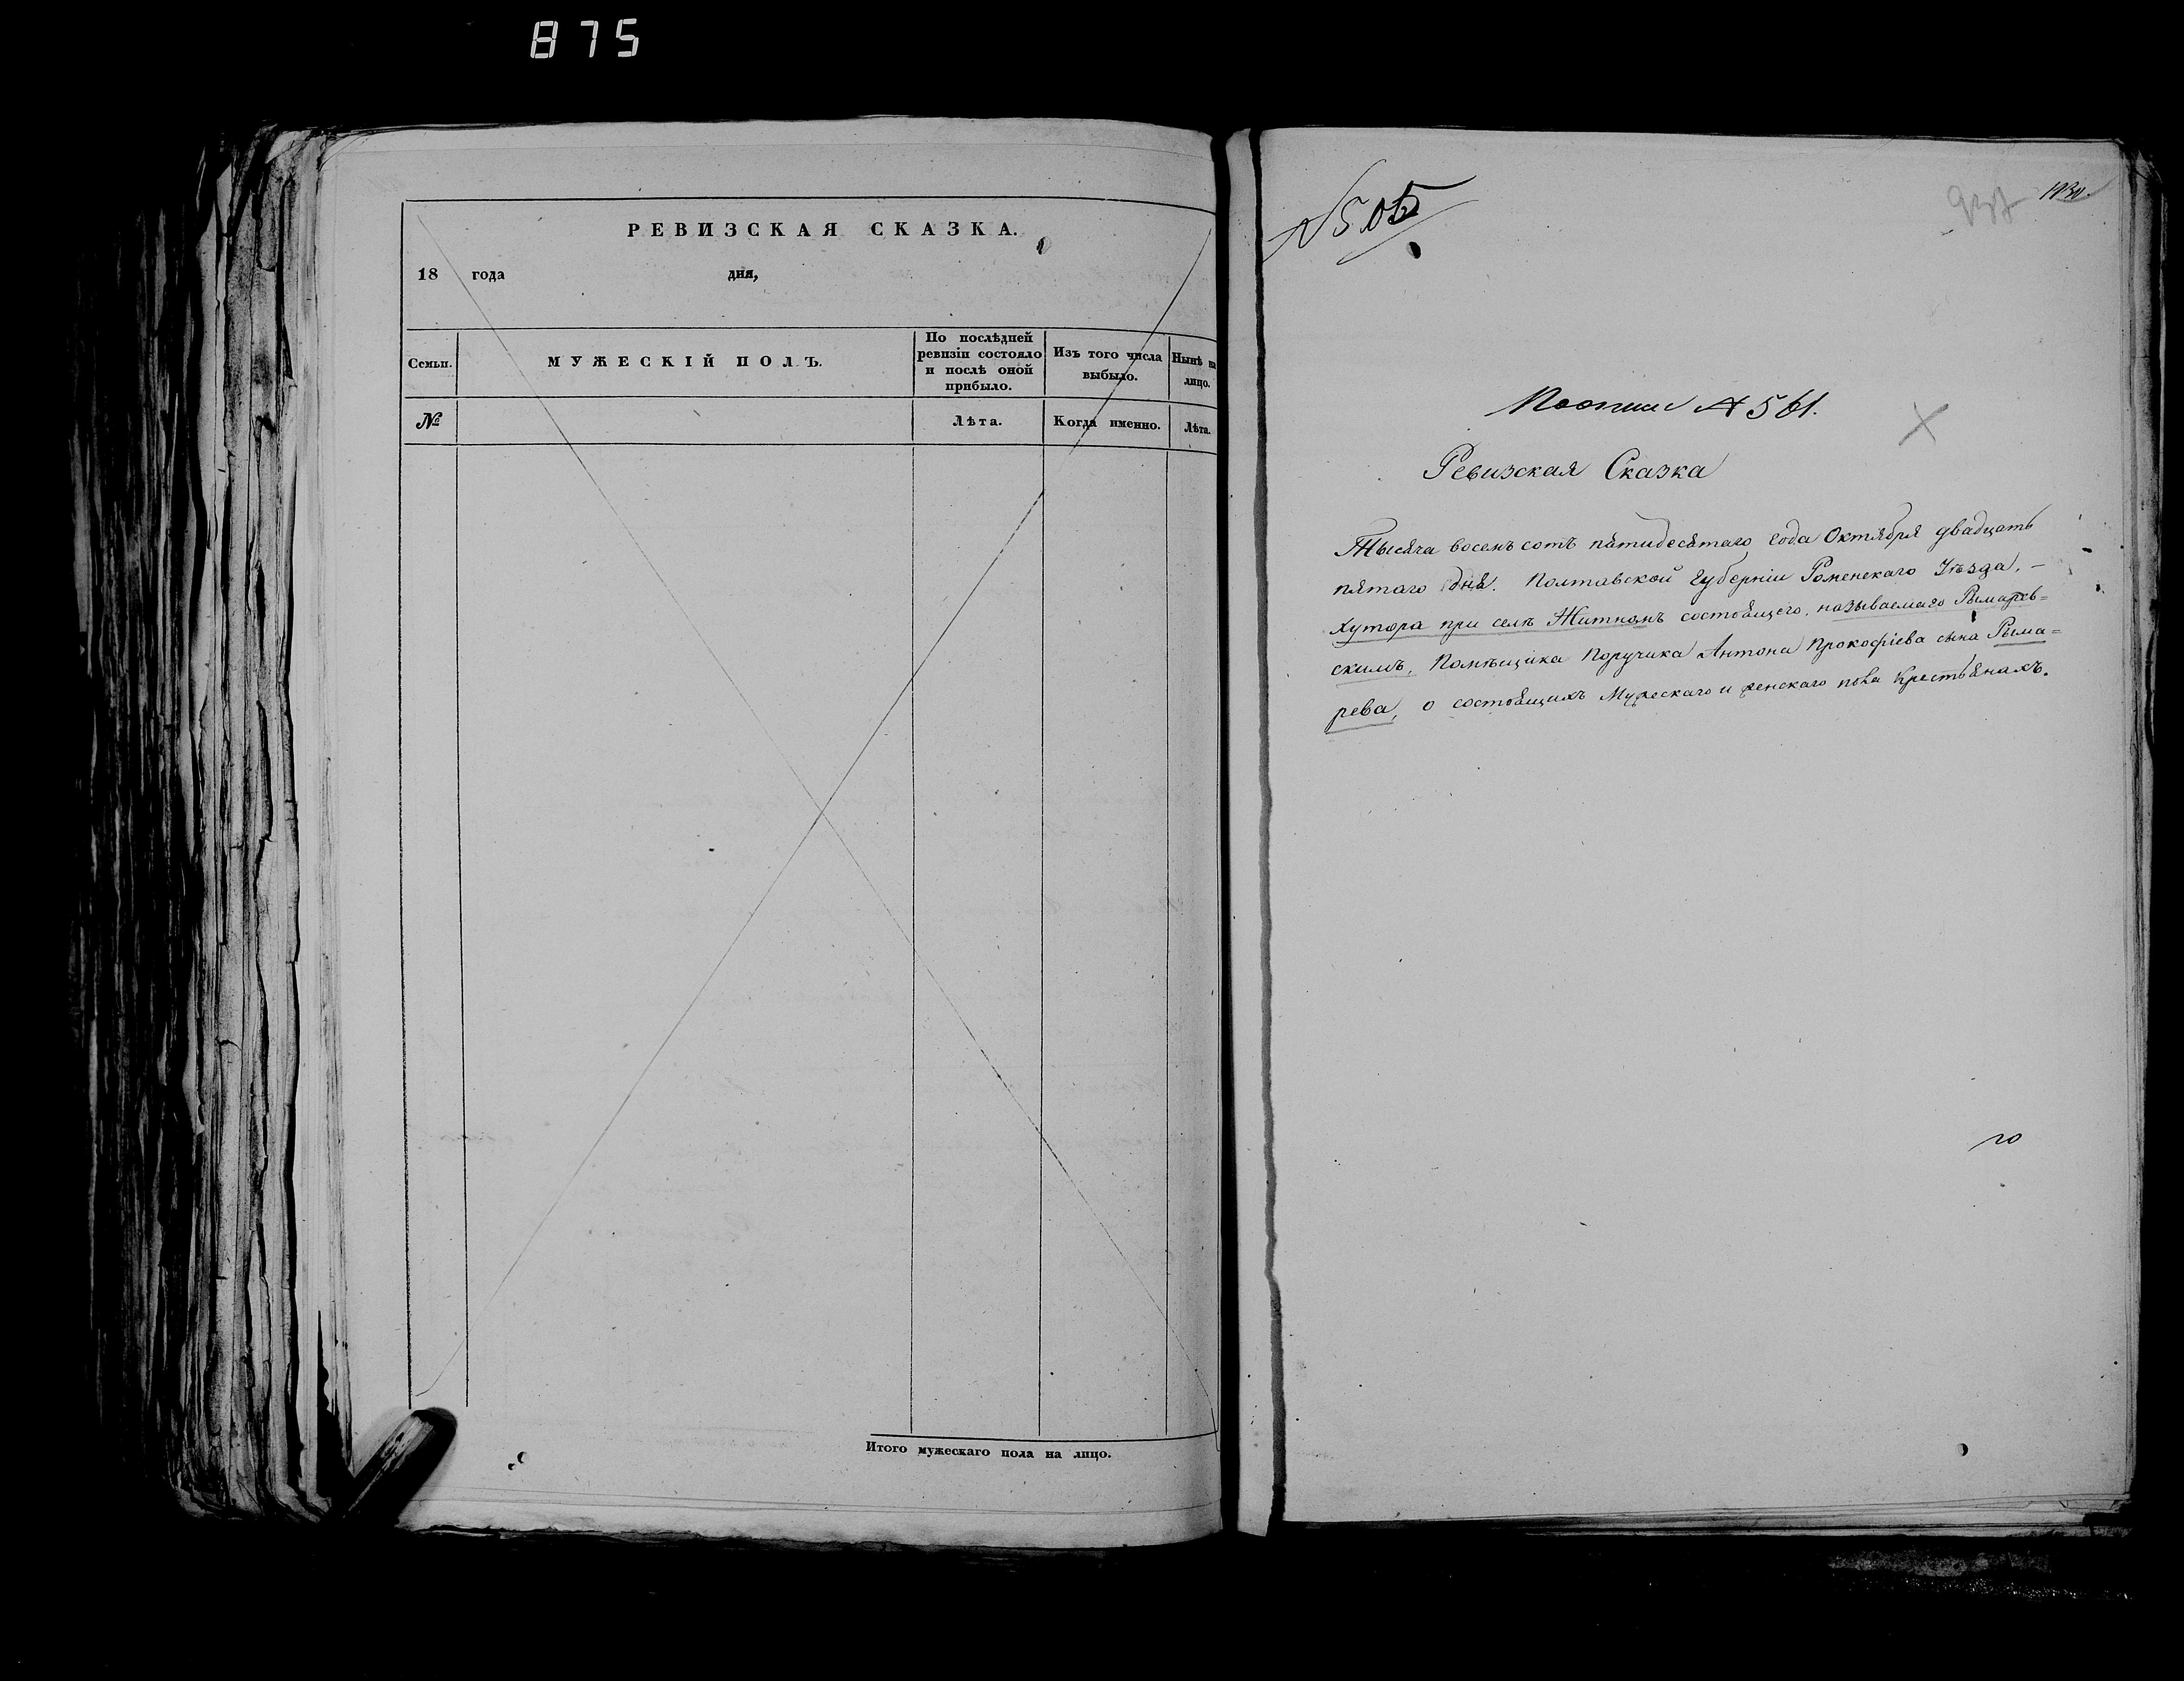 875
РЕВИЗСКАЯ СКАЗКА.
18 года дня,
Семьи.
МУЖЕСКІЙ ПОЛЪ.
По послѣдней ревизіи состояло и послѣ оной прибыло.
Изъ того числа выбыло.
Нынѣ на лицо.
№
Лѣта.
Когда именно.
Лѣта.
Итого мужескаго пола на лицо.
№505
№ 561.
Ревизская Сказка
Тысяча восемъ сотъ пятидесятаго года Октября двадцать
пятаго дня. Полтавской Губерніи Роменскаго Уѣзда. –
Хутора при селѣ Житномъ состоящего, называемаго Рымарев=
скимъ, Помѣщика Поручика Антона Прокофіева сына Рыма=
рева, о состоящихъ Мужескаго и женскаго пола крестьянахъ.